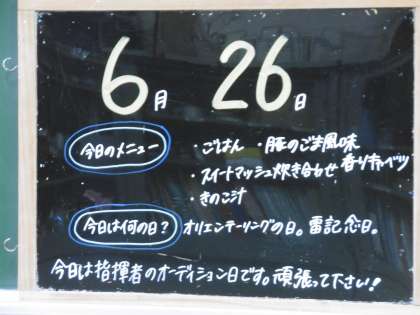 6月 26日
今日のメニュー ・ごはん ・豚のごま風味
・スイートマッシュ炊き合わせ 香りキャベツ
・きのこ汁
今日は何の日? オリエンテーリングの日。雷記念日。
今日は指揮者のオーディション日です。頑張って下さい!